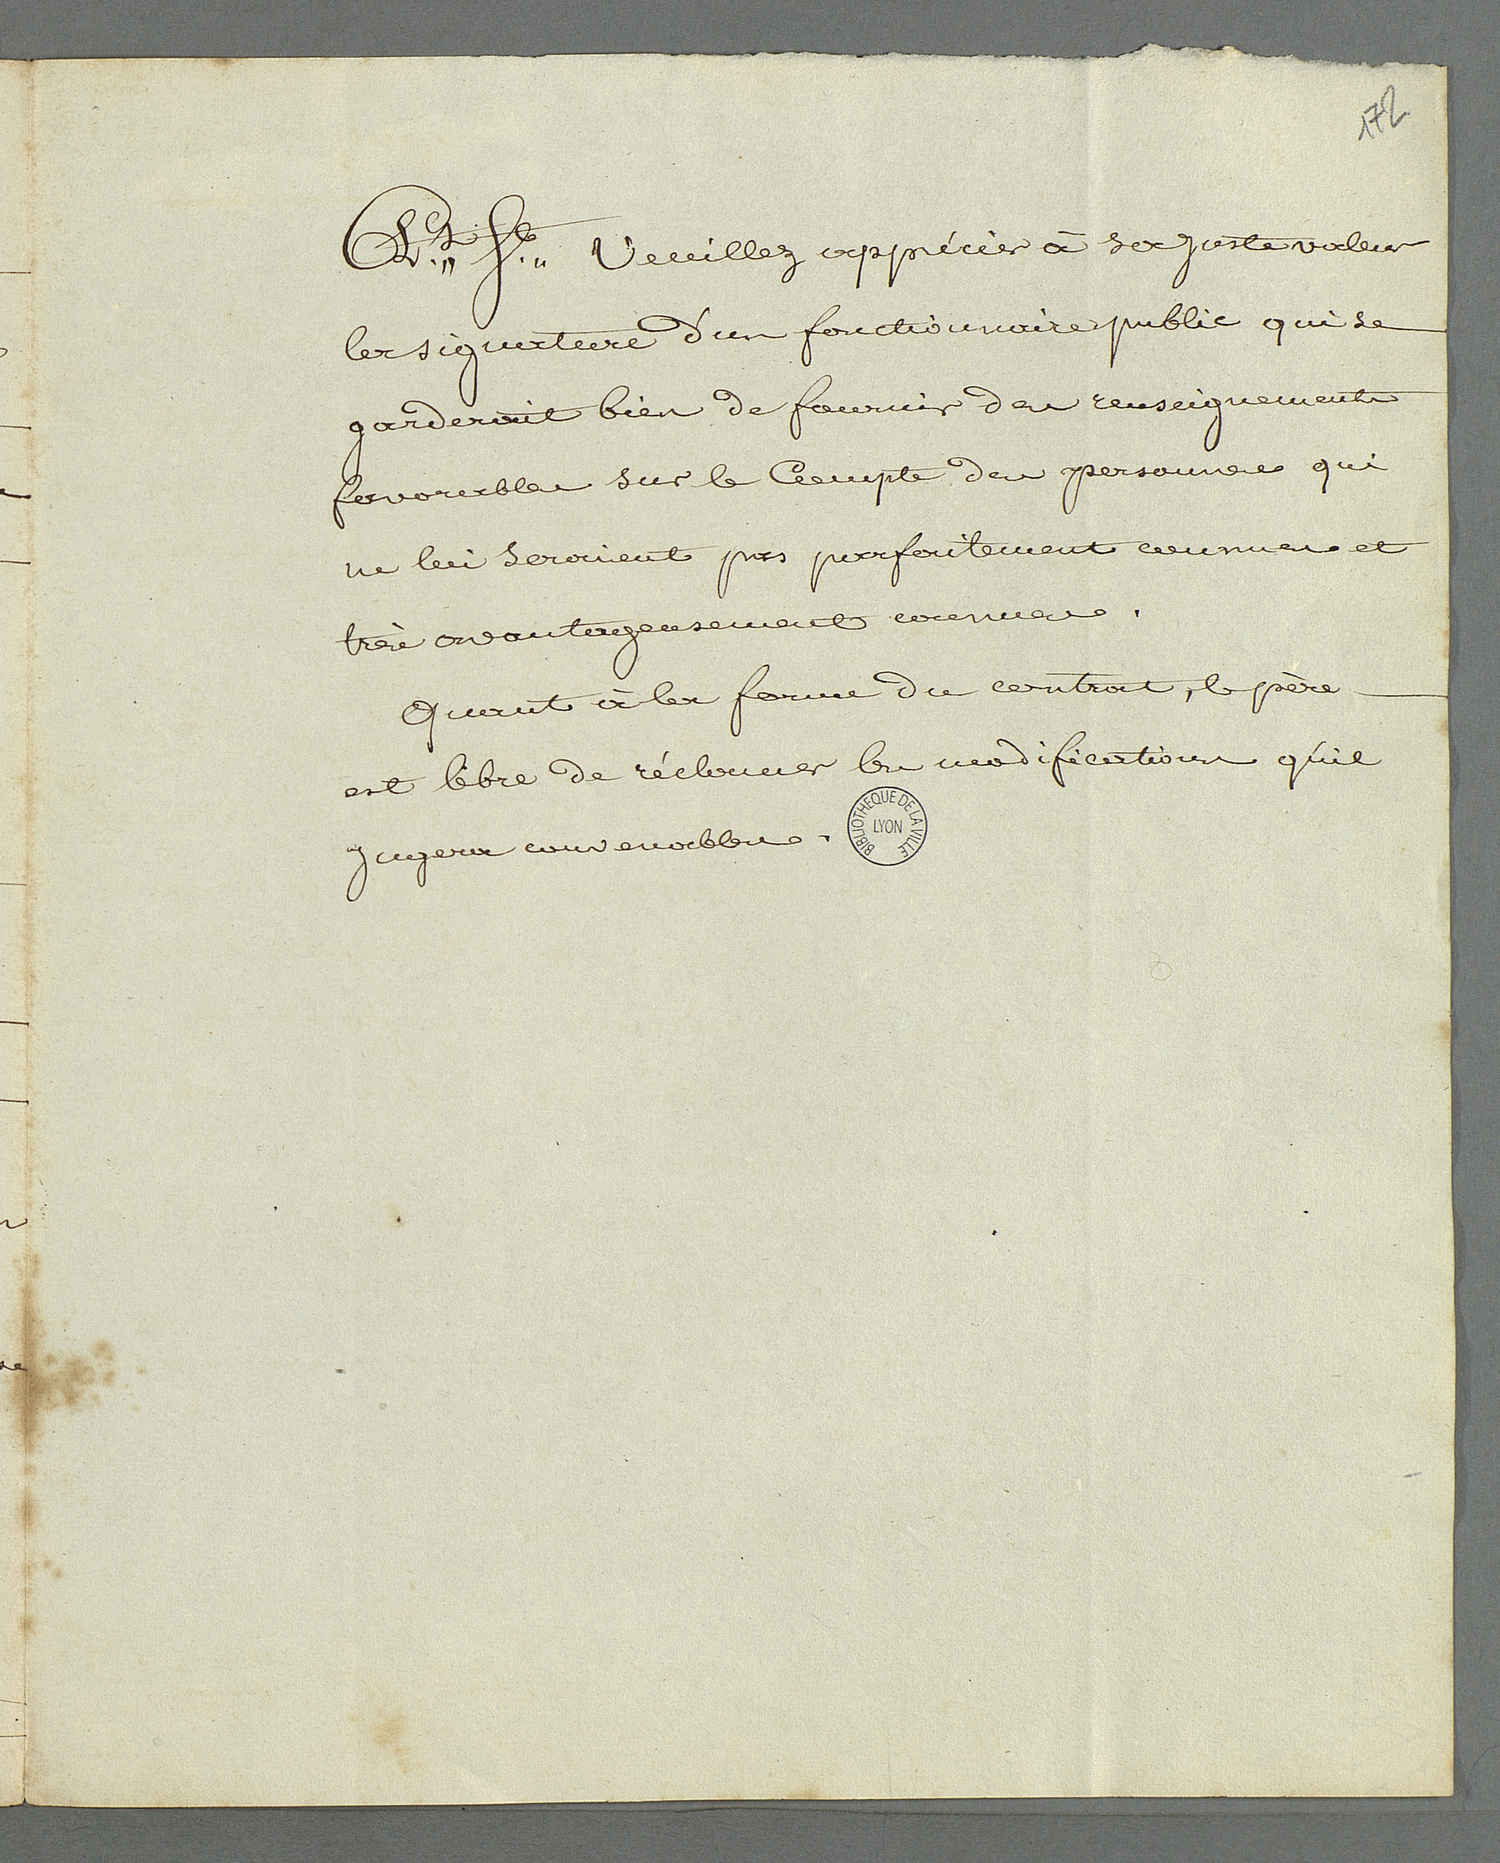 172
P.t S.t Veuillez apprécier à sa juste valeur
la signature d'un fonctionnaire public qui se
garderait bien de fournir des renseignements
favorables sur le Compte des personnes qui
ne lui seraient pas parfaitement connues et
très avantageusement connues.
Quant à la forme du contrat, le père
est libre de réclamer les modifications qu'il
jugera convenables.
BIBLIOTHEQUE DE LA VILLE
LYON